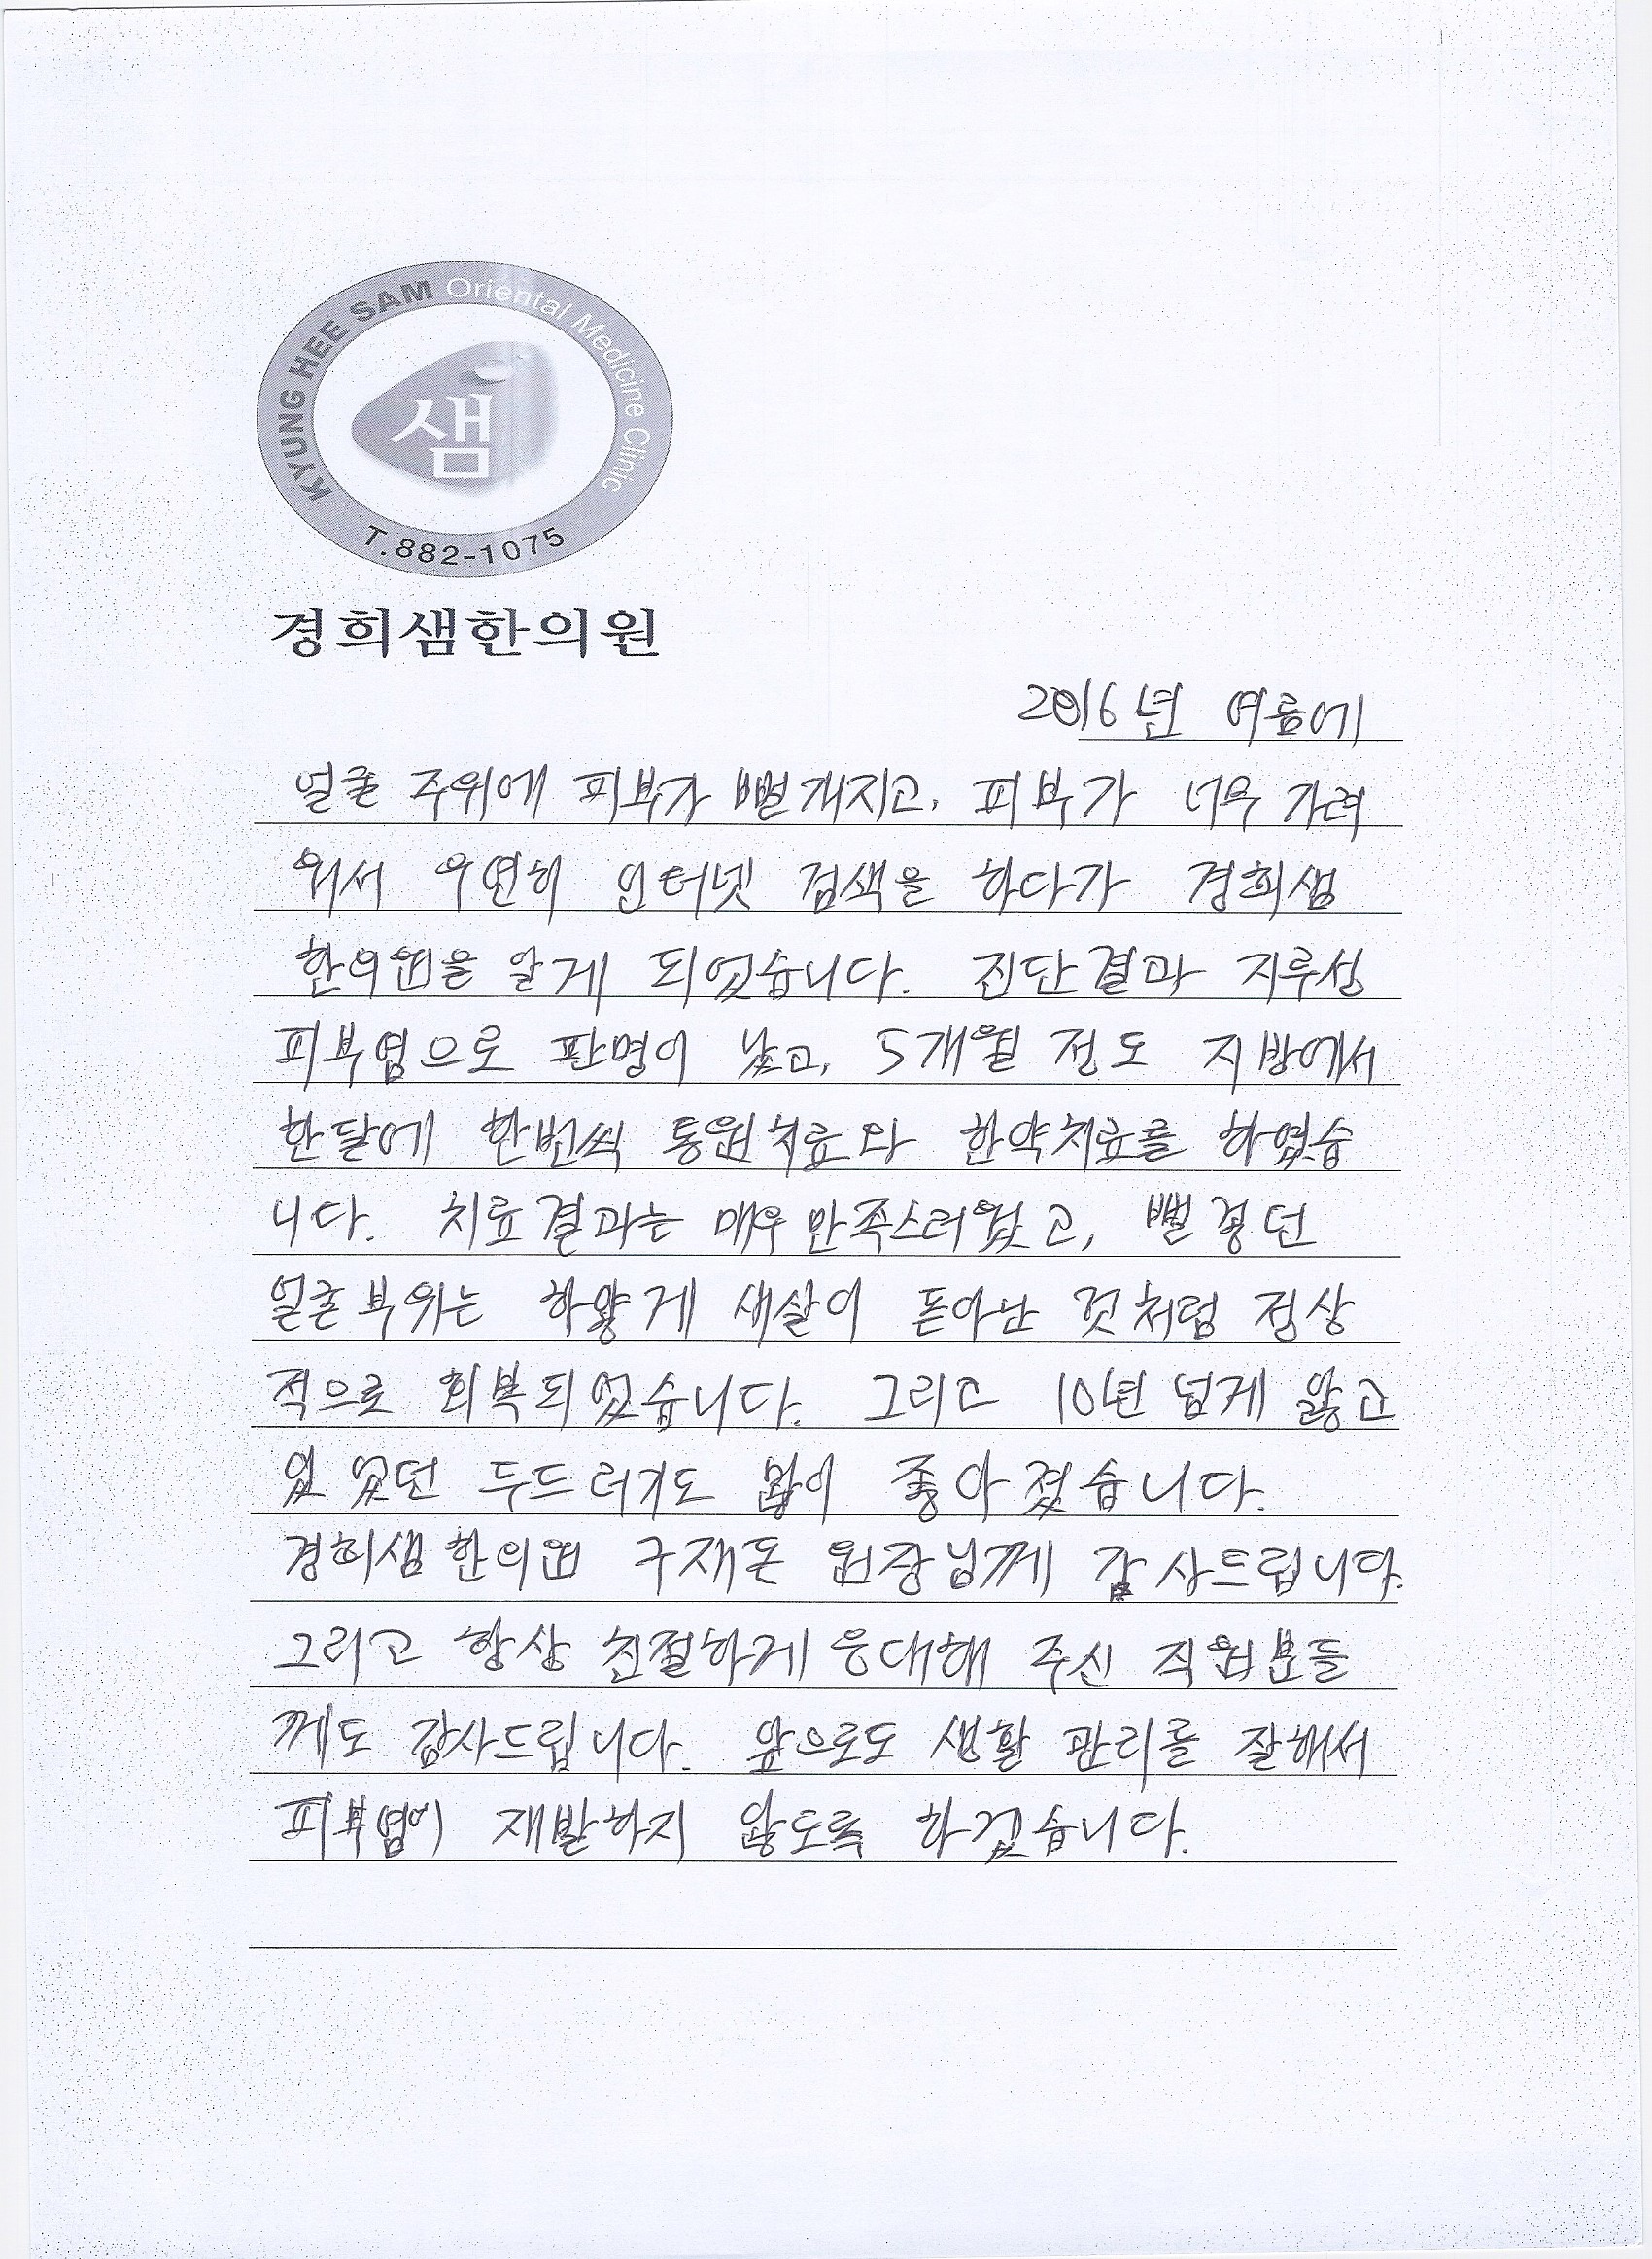 KYUNG HEE SAM Oriental Medicine Clinic
샘
T.882-1075
경희샘한의원
2016년 여름에
얼굴 주위에 피부가 뻘개지고, 피부가 너무 가려
워서 우연히 인터넷 검색을 하다가 경희샘
한의원을 알게 되었습니다. 진단결과 지루성
피부염으로 판명이 났고, 5개월 정도 지방에서
한달에 한번씩 통원치료와 한약치료를 하였습
니다. 치료결과는 매우 만족스러웠고, 뻘겋던
얼굴부위는 하얗게 새살이 돋아난 것처럼 정상
적으로 회복되었습니다. 그리고 10년 넘게 앓고
있었던 두드러기도 많이 좋아졌습니다.
경희샘한의원 구재돈 원장님께 감사드립니다.
그리고 항상 친절하게 응대해 주신 직원분들
께도 감사드립니다. 앞으로도 생활 관리를 잘해서
피부염이 재발하지 않도록 하겠습니다.